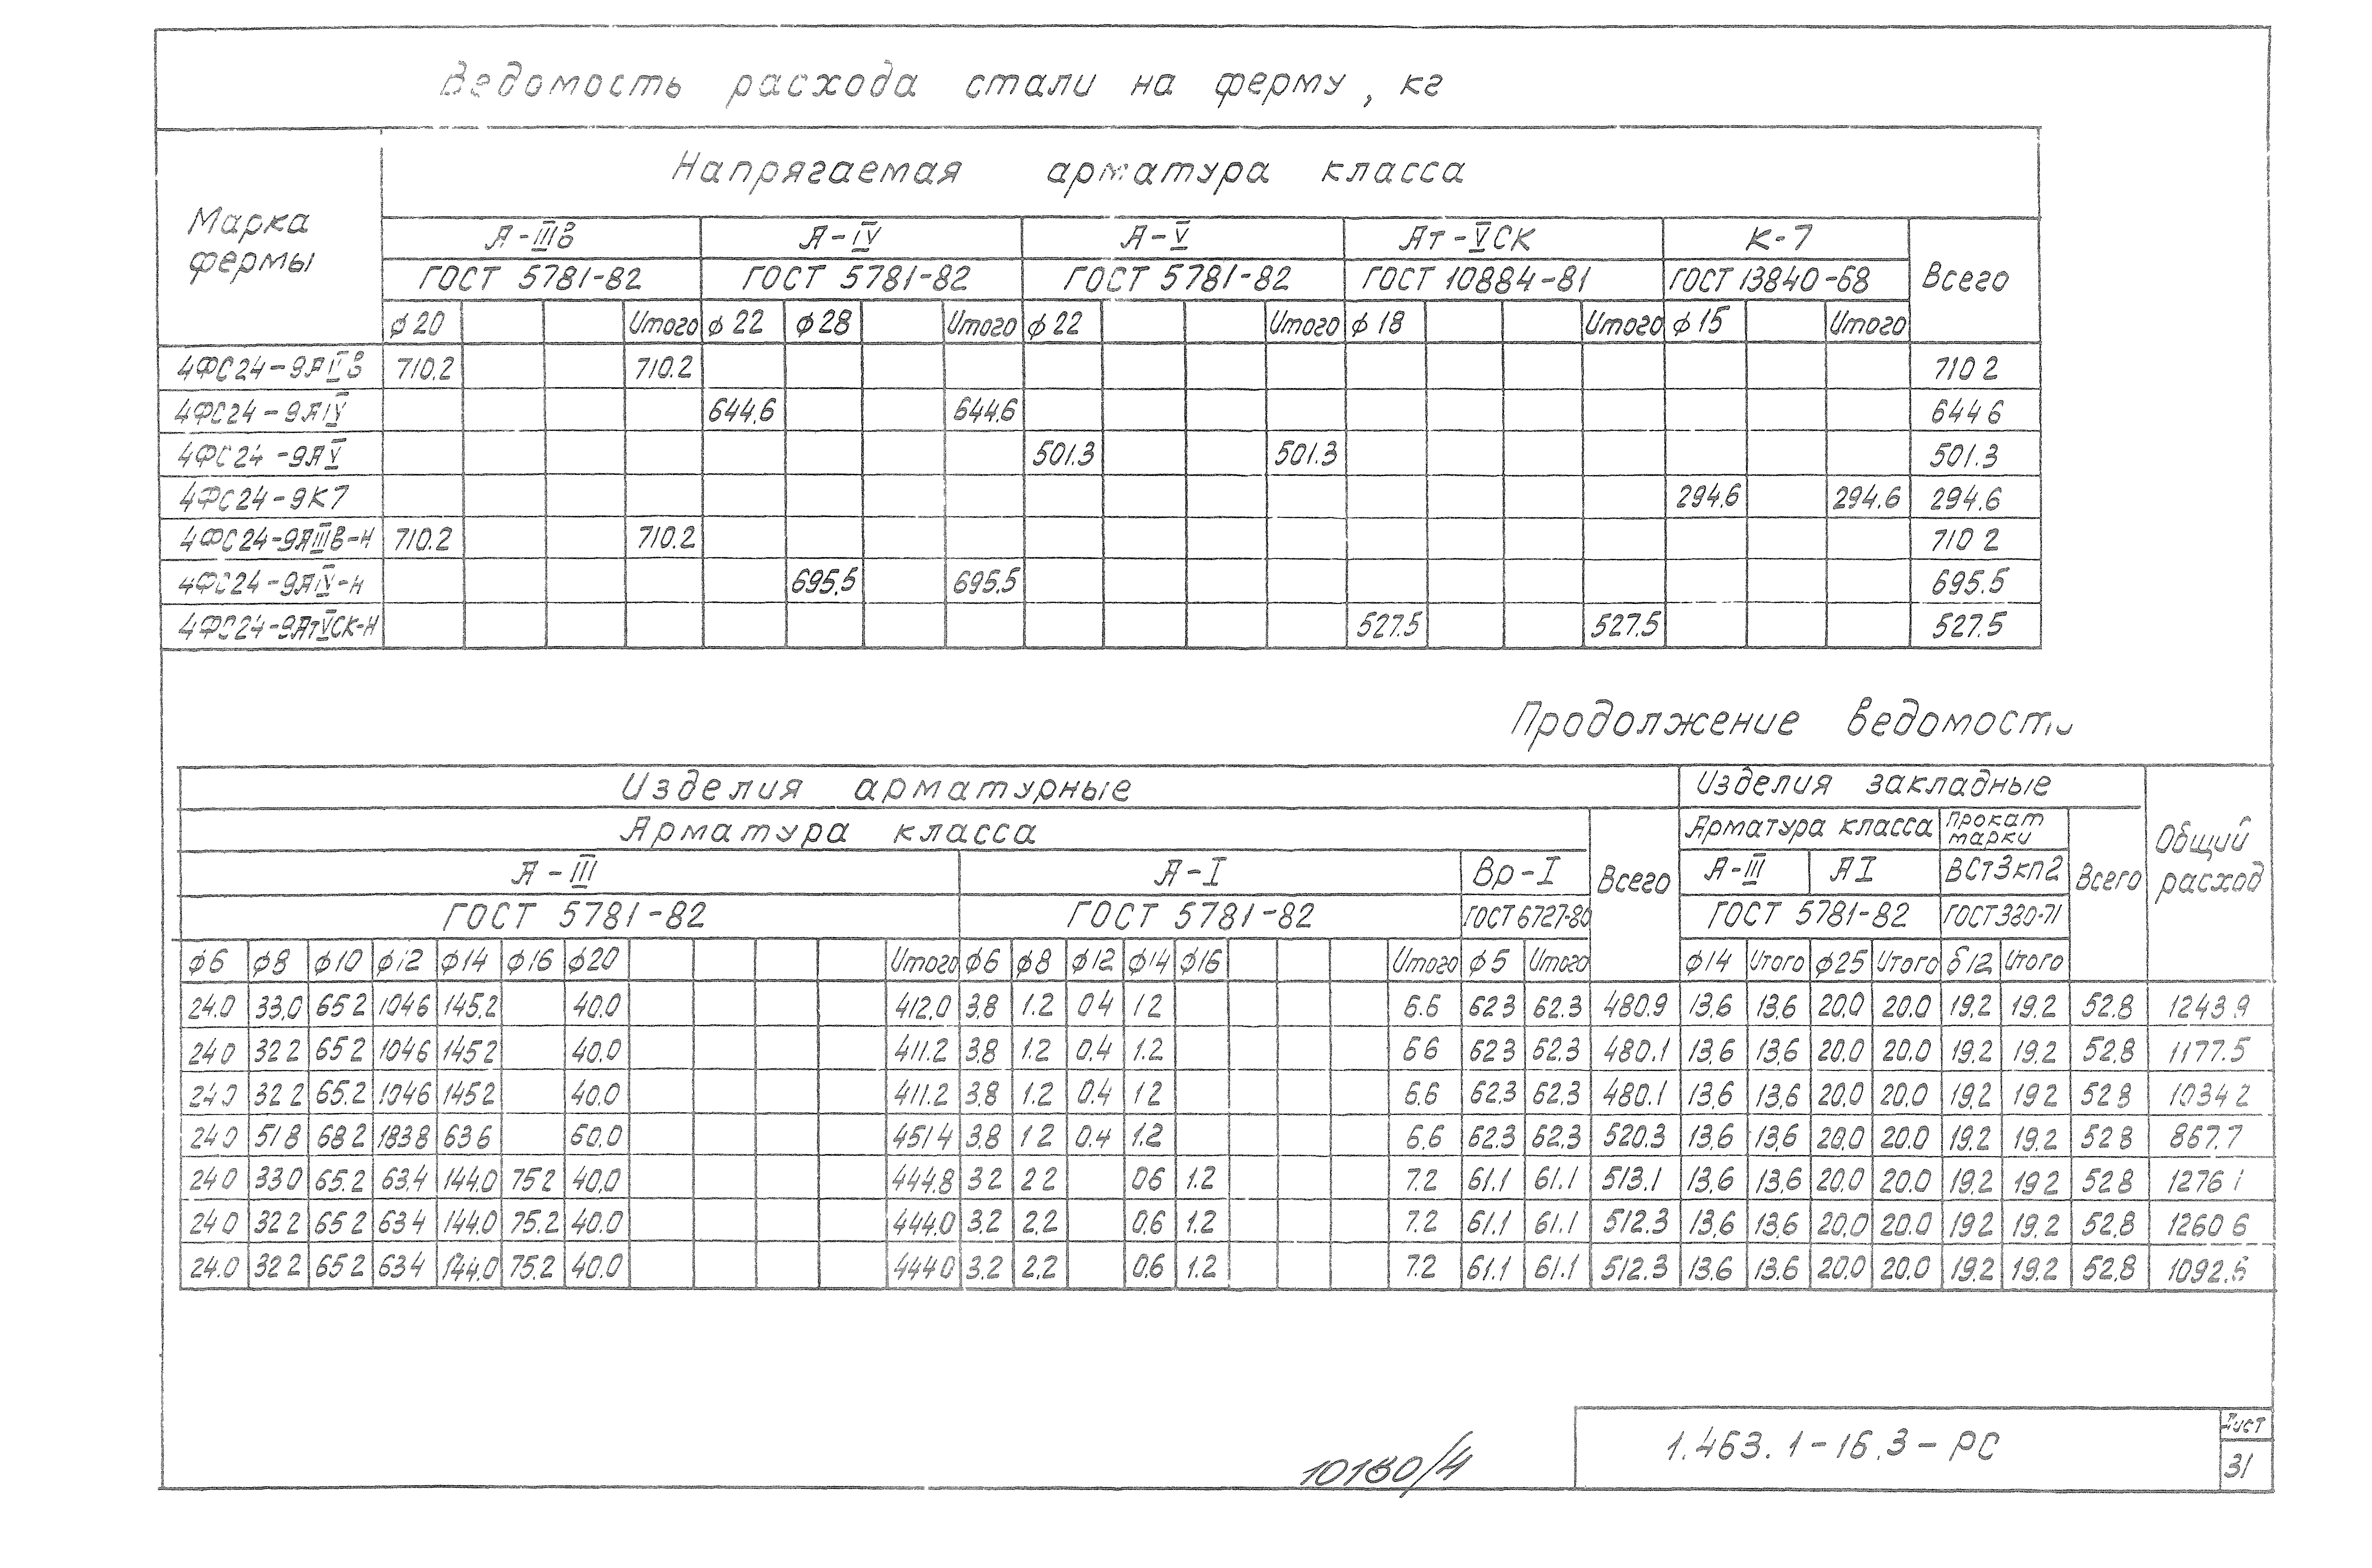 Ведомость расхода стали на ферму, кг
Марка фермы
Напрягаемая арматура класса
А-IIIв А-IV А-V Ат-VСК К-7 Всего
ГОСТ 5781-82 ГОСТ 5781-82 ГОСТ 5781-82 ГОСТ 10884-81 ГОСТ 13840-68
ф20 Итого ф22 ф28 Итого ф22 Итого ф18 Итого ф15 Итого
4ФС24-9АIIIВ 710.2 710.2 710 2
4ФС24-9АIV 644.6 644.6 644 6
4ФС24-9АV 501.3 501.3 501.3
4ФС24-9К7 294.6 294.6 294.6
4ФС24-9АIIIВ-Н 710.2 710.2 710 2
4ФС24-9АIV-Н 695.5 695.5 695.5
4ФС24-9АтVСК-Н 527.5 527.5 527.5
Продолжение ведомости
Изделия арматурные Изделия закладные Общий расход
Арматура класса Всего Арматура класса Прокат марки Всего
А-III А-I Вр-I А-III АI ВСт3кп2
ГОСТ 5781-82 ГОСТ 5781-82 ГОСТ 6727-80 ГОСТ 5781-82 ГОСТ 380-71
ф6 ф8 ф10 ф12 ф14 ф16 ф20 Итого ф6 ф8 ф12 ф14 ф16 Итого ф5 Итого ф14 Итого ф25 Итого δ12 Итого
24.0 33.0 65 2 104 6 145.2 40.0 412.0 3.8 1.2 0 4 1 2 6.6 62 3 62.3 480.9 13.6 13.6 20.0 20.0 19.2 19.2 52.8 1243 9
24 0 32 2 65 2 104 6 145 2 40.0 411.2 3.8 1.2 0.4 1.2 6 6 62 3 62.3 480.1 13.6 13.6 20.0 20.0 19.2 19.2 52.8 1177.5
24 0 32 2 65.2 104 6 145 2 40.0 411.2 3.8 1.2 0.4 1 2 6.6 62.3 62.3 480.1 13.6 13.6 20.0 20.0 19.2 19 2 52 8 1034 2
24 0 51 8 68 2 183 8 63 6 60.0 451 4 3.8 1 2 0.4 1.2 6.6 62.3 62.3 520.3 13.6 13.6 20.0 20.0 19.2 19.2 52 8 867.7
24 0 33 0 65.2 63.4 144.0 75 2 40.0 444.8 3 2 2 2 0 6 1.2 7.2 61.1 61.1 513.1 13.6 13.6 20.0 20.0 19.2 19 2 52 8 1276 1
24 0 32 2 65 2 63 4 144.0 75.2 40.0 444.0 3.2 2.2 0.6 1.2 7.2 61.1 61.1 512.3 13.6 13.6 20.0 20.0 19 2 19.2 52.8 1260 6
24.0 32 2 65 2 63 4 144.0 75.2 40.0 444 0 3.2 2.2 0.6 1.2 7.2 61.1 61.1 512.3 13.6 13.6 20.0 20.0 19.2 19.2 52.8 1092.6
1.463.1-16.3-РС
Лист
31